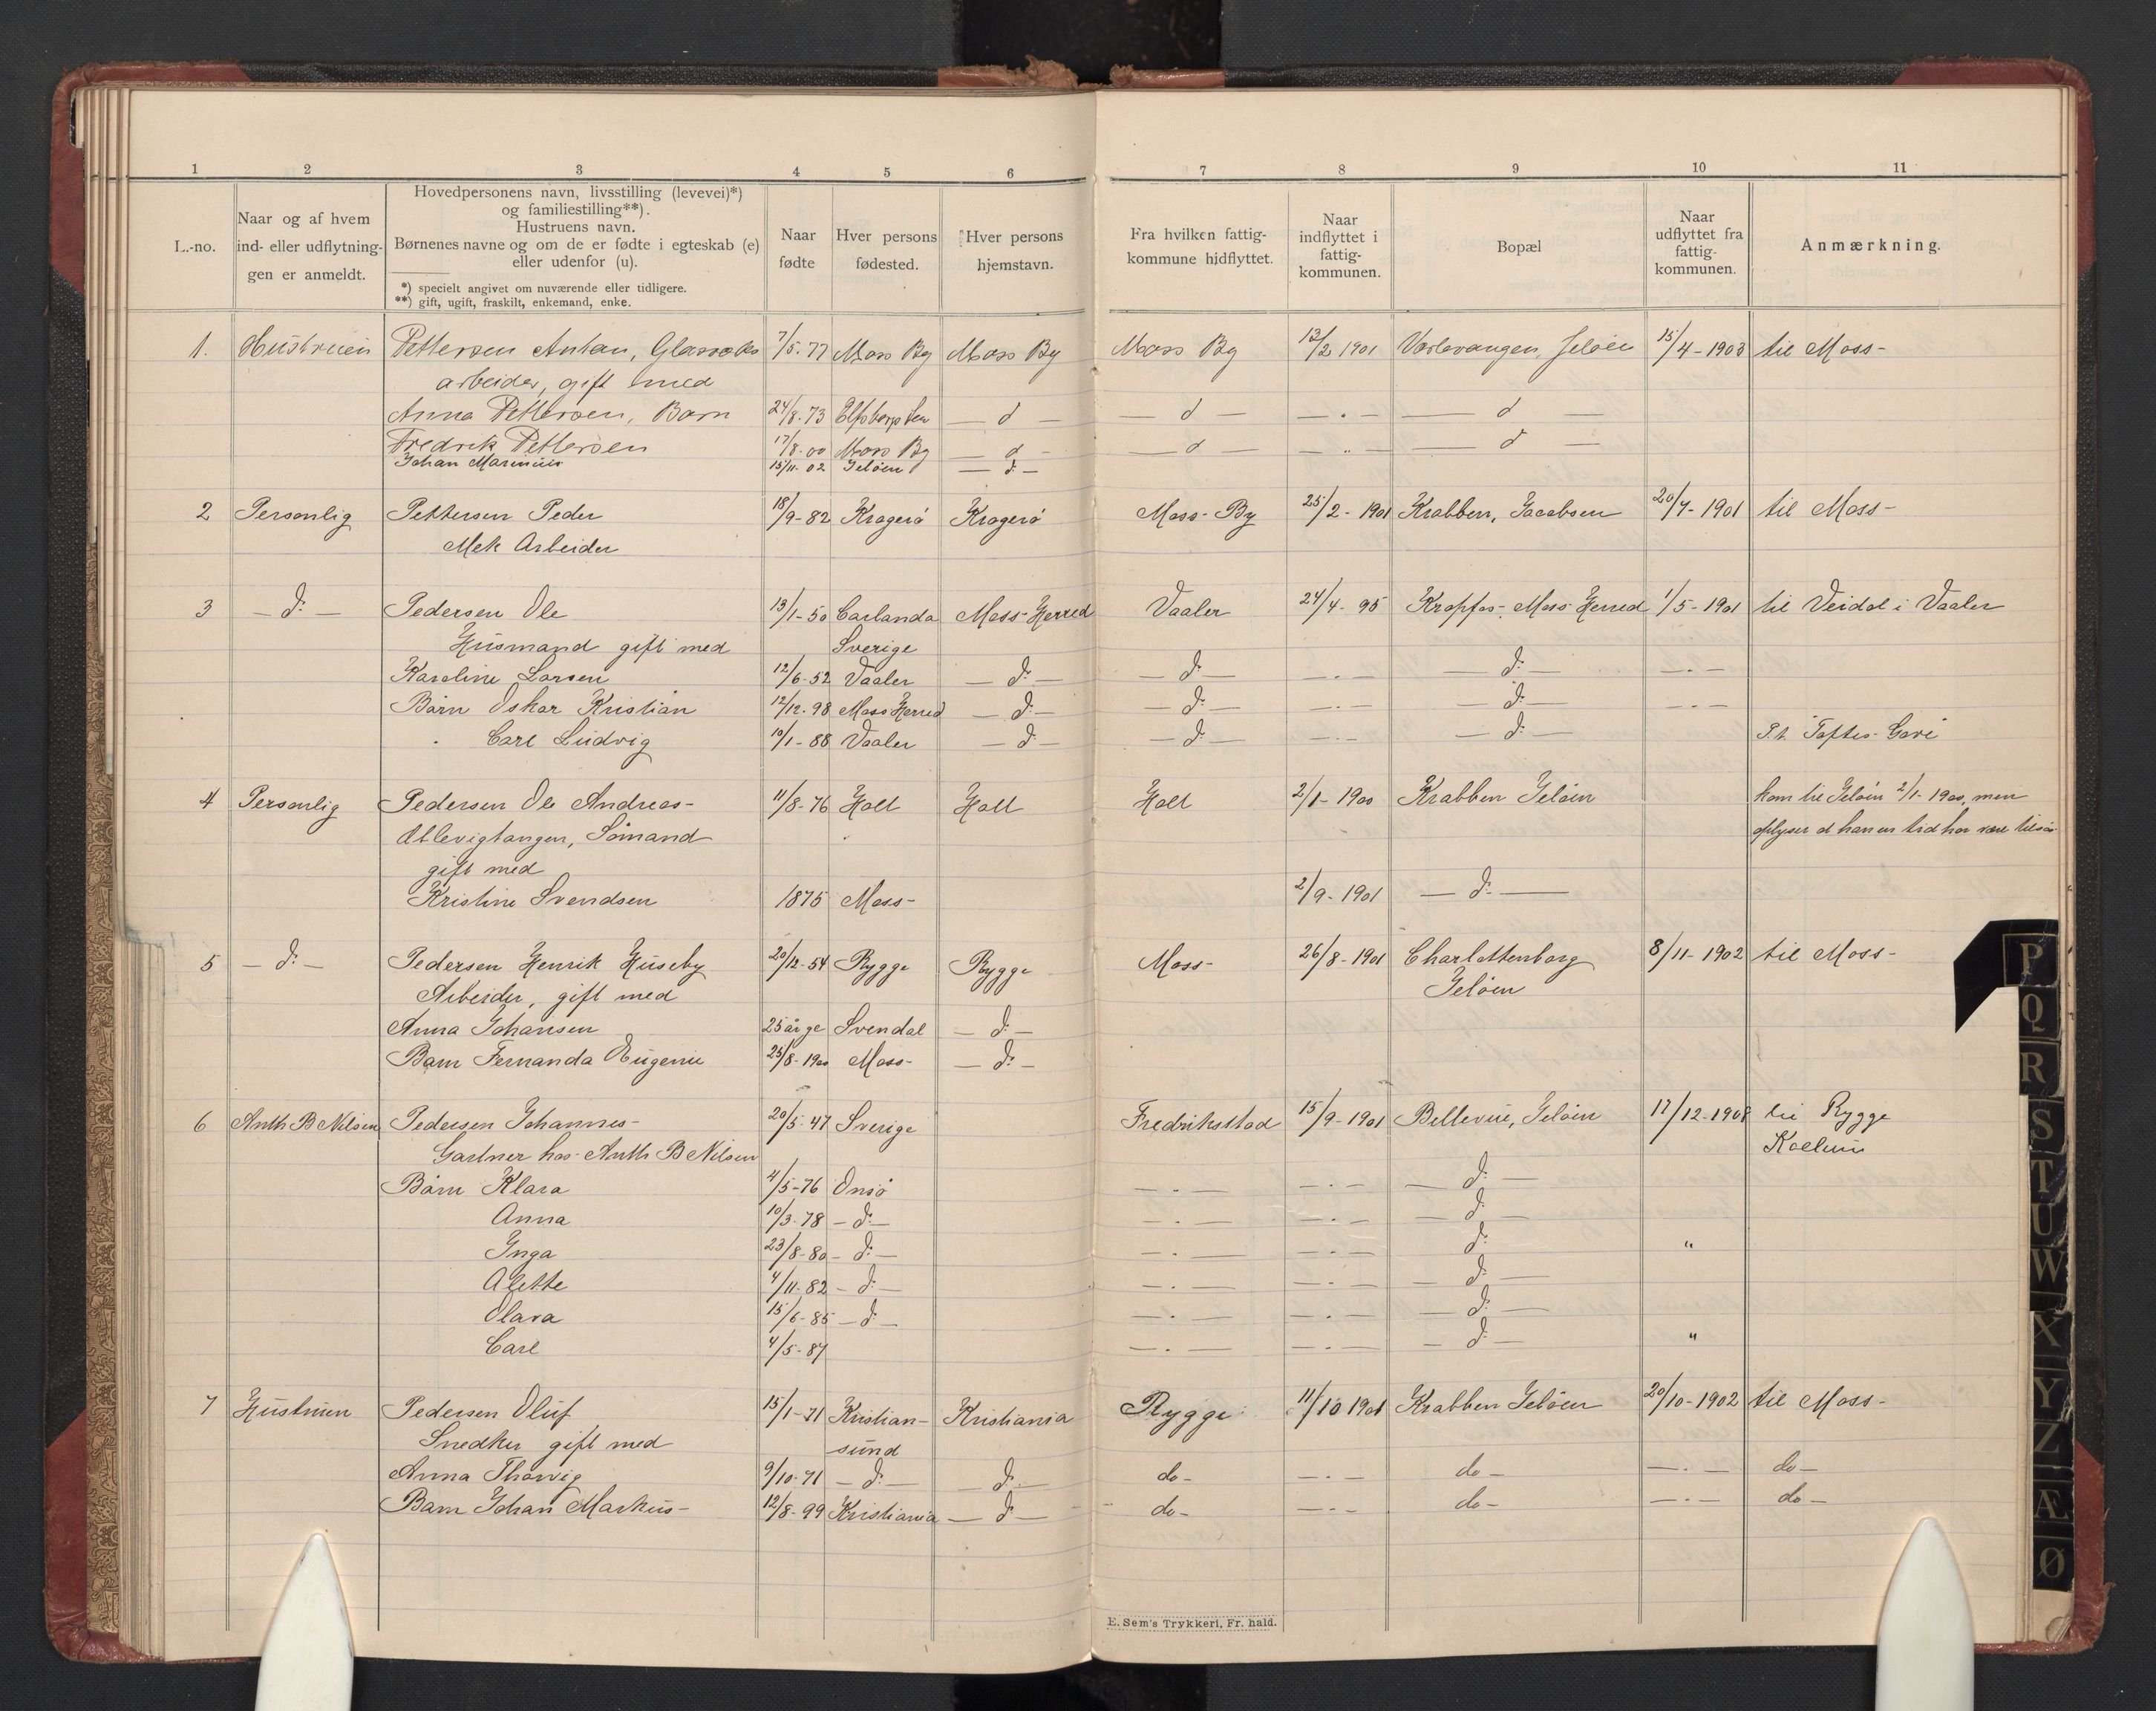 1 2 3 4 5 6 7 8 9 10 11
L.-no. Naar og af hvem ind- eller udflytningen er anmeldt. Hovedpersonens navn, livsstilling (levevei)*) og familiestilling**). Hustruens navn. Børnenes navne og om de er fødte i egteskab (e) eller udenfor (u). Naar fødte Hver persons fødested. Hver persons hjemstavn. Fra hvilken fattigkommune hidflyttet. Naar indflyttet i fattigkommunen. Bopæl Naar udflyttet fra fattigkommunen. Anmærkning.
*) specielt angivet om nuværende eller tidligere.
**) gift, ugift, fraskilt, enkemand, enke.
1. Hustruen Pettersen Anton, 7/5-77 Moss By Moss By Moss By 13/2 1901 Jeløen 15/4-1903 til Moss-
arbeider, gift med
Anna Pettersen, Barn 24/8-73 — d — — d — — . — — d —
Fredrik Pettersen 17/8-00 Moss By — d — — d — — „ — — d —
Johan Marinius 15/11-02 Jeløen — d: —
2 Personlig Pettersen Peder 18/9-82 Kragerø Kragerø Moss-By 25/2-1901 Krabben, Jacobsen 20/4-1901 til Moss-
Mek Arbeider
3 — d: — Pedersen Ole 13/1-50 Carlanda Moss-Herred Vaaler 24/4-95 Kropfos-Moss-Herred 1/5-1901 til Veidal i Vaaler
Husmand gift med Sverige
Karoline Larsen 12/6-52 Vaaler — d: — — d: — — . — — d: — — . —
Børn Oskar Kristian 12/12-98 Moss Herred — d: — — d: — — . — — d: — — . —
" Carl Ludvig 10/1-88 Vaaler — d: — — d: — — . — — d: — P.t. Toftes-Gave
4 Personlig Pedersen Ole Andreas- 11/8-76 Holt Holt Holt 2/1-1900 Krabben Jeløen kom til Jeløen 2/1-1900, men
Sømand oplyser at han en tid har være tilsøs
gift med
Kristine Svendsen 1875 Moss- 2/9-1901 — d: —
5 — d: — Pedersen Henrik Huseby 20/12-54 Rygge Rygge Moss- 26/8-1901 Charlottenborg 8/11-1902 til Moss-
Arbeider, gift med Jeløen
Anna Johansen 25 år ge Svendal — d: —
Barn Fernanda Eugenie 25/8-1900 Moss- — d: —
6 Anth B Nilsen Pedersen Johannes- 20/5-47 Sverige Fredriksstad 15/9-1901 Bellevue, Jeløen 17/12-1908 til Rygge
Gartner hos Anth B Nilsen
Børn Klara 4/5-76 Onsø — . — — . — — d: —
Anna 10/3-78 — d: — — . — — . — — d: —
Inga 23/8-80 — d: — — . — — . — d: "
Alette 4/11-82 — d: — — . — — . — — d: —
Olava 15/6-85 — d: — — . — — . — — d: —
Carl 4/5-87 — . — — . — — d: — "
7 Hustruen Pedersen Oluf 15/1-71 Kristian- Kristiania Rygge 11/10 1901 Krabben Jeløen 20/10-1902 til Moss-
Snedker gift med sund
Anna Thorvig 9/10-71 — d: — — d: — do- — . — do- — . — do-
Barn Johan Markus- 12/8-99 Kristiania — d: — do- — . — do- — . — do-
E. Sem's Trykkeri, Fr. hald.
P
Q
R
S
T
U
W
X
Y
Z
Æ
Ø